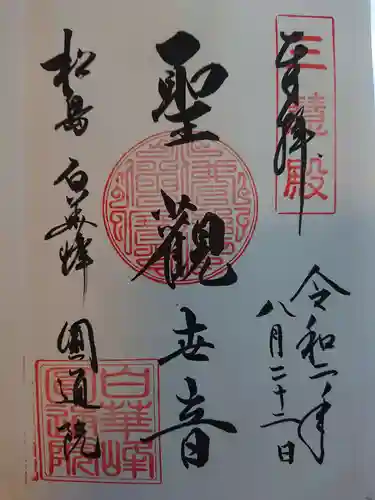 奉拝
三慧殿
令和二年
八月二十二日
聖観世音
松島 白華峰 圓通院
白華峰
圓通院